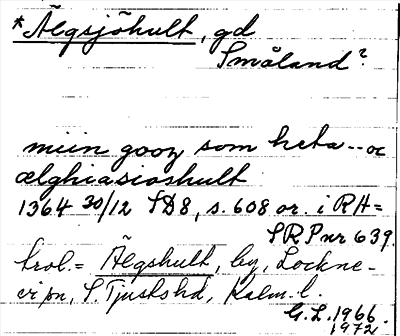 *Älgsjöhult, gd
Småland?
miin gooz som heta -- oc
ælghiasioshult
1364 30/12 SD8, s. 608 or. i RH=
SRP nr 639.
trol. = Älgshult, by, Lockne-
vi pn, S. Tjusts hd, Kalm. l.
G.L. 1966.
1972